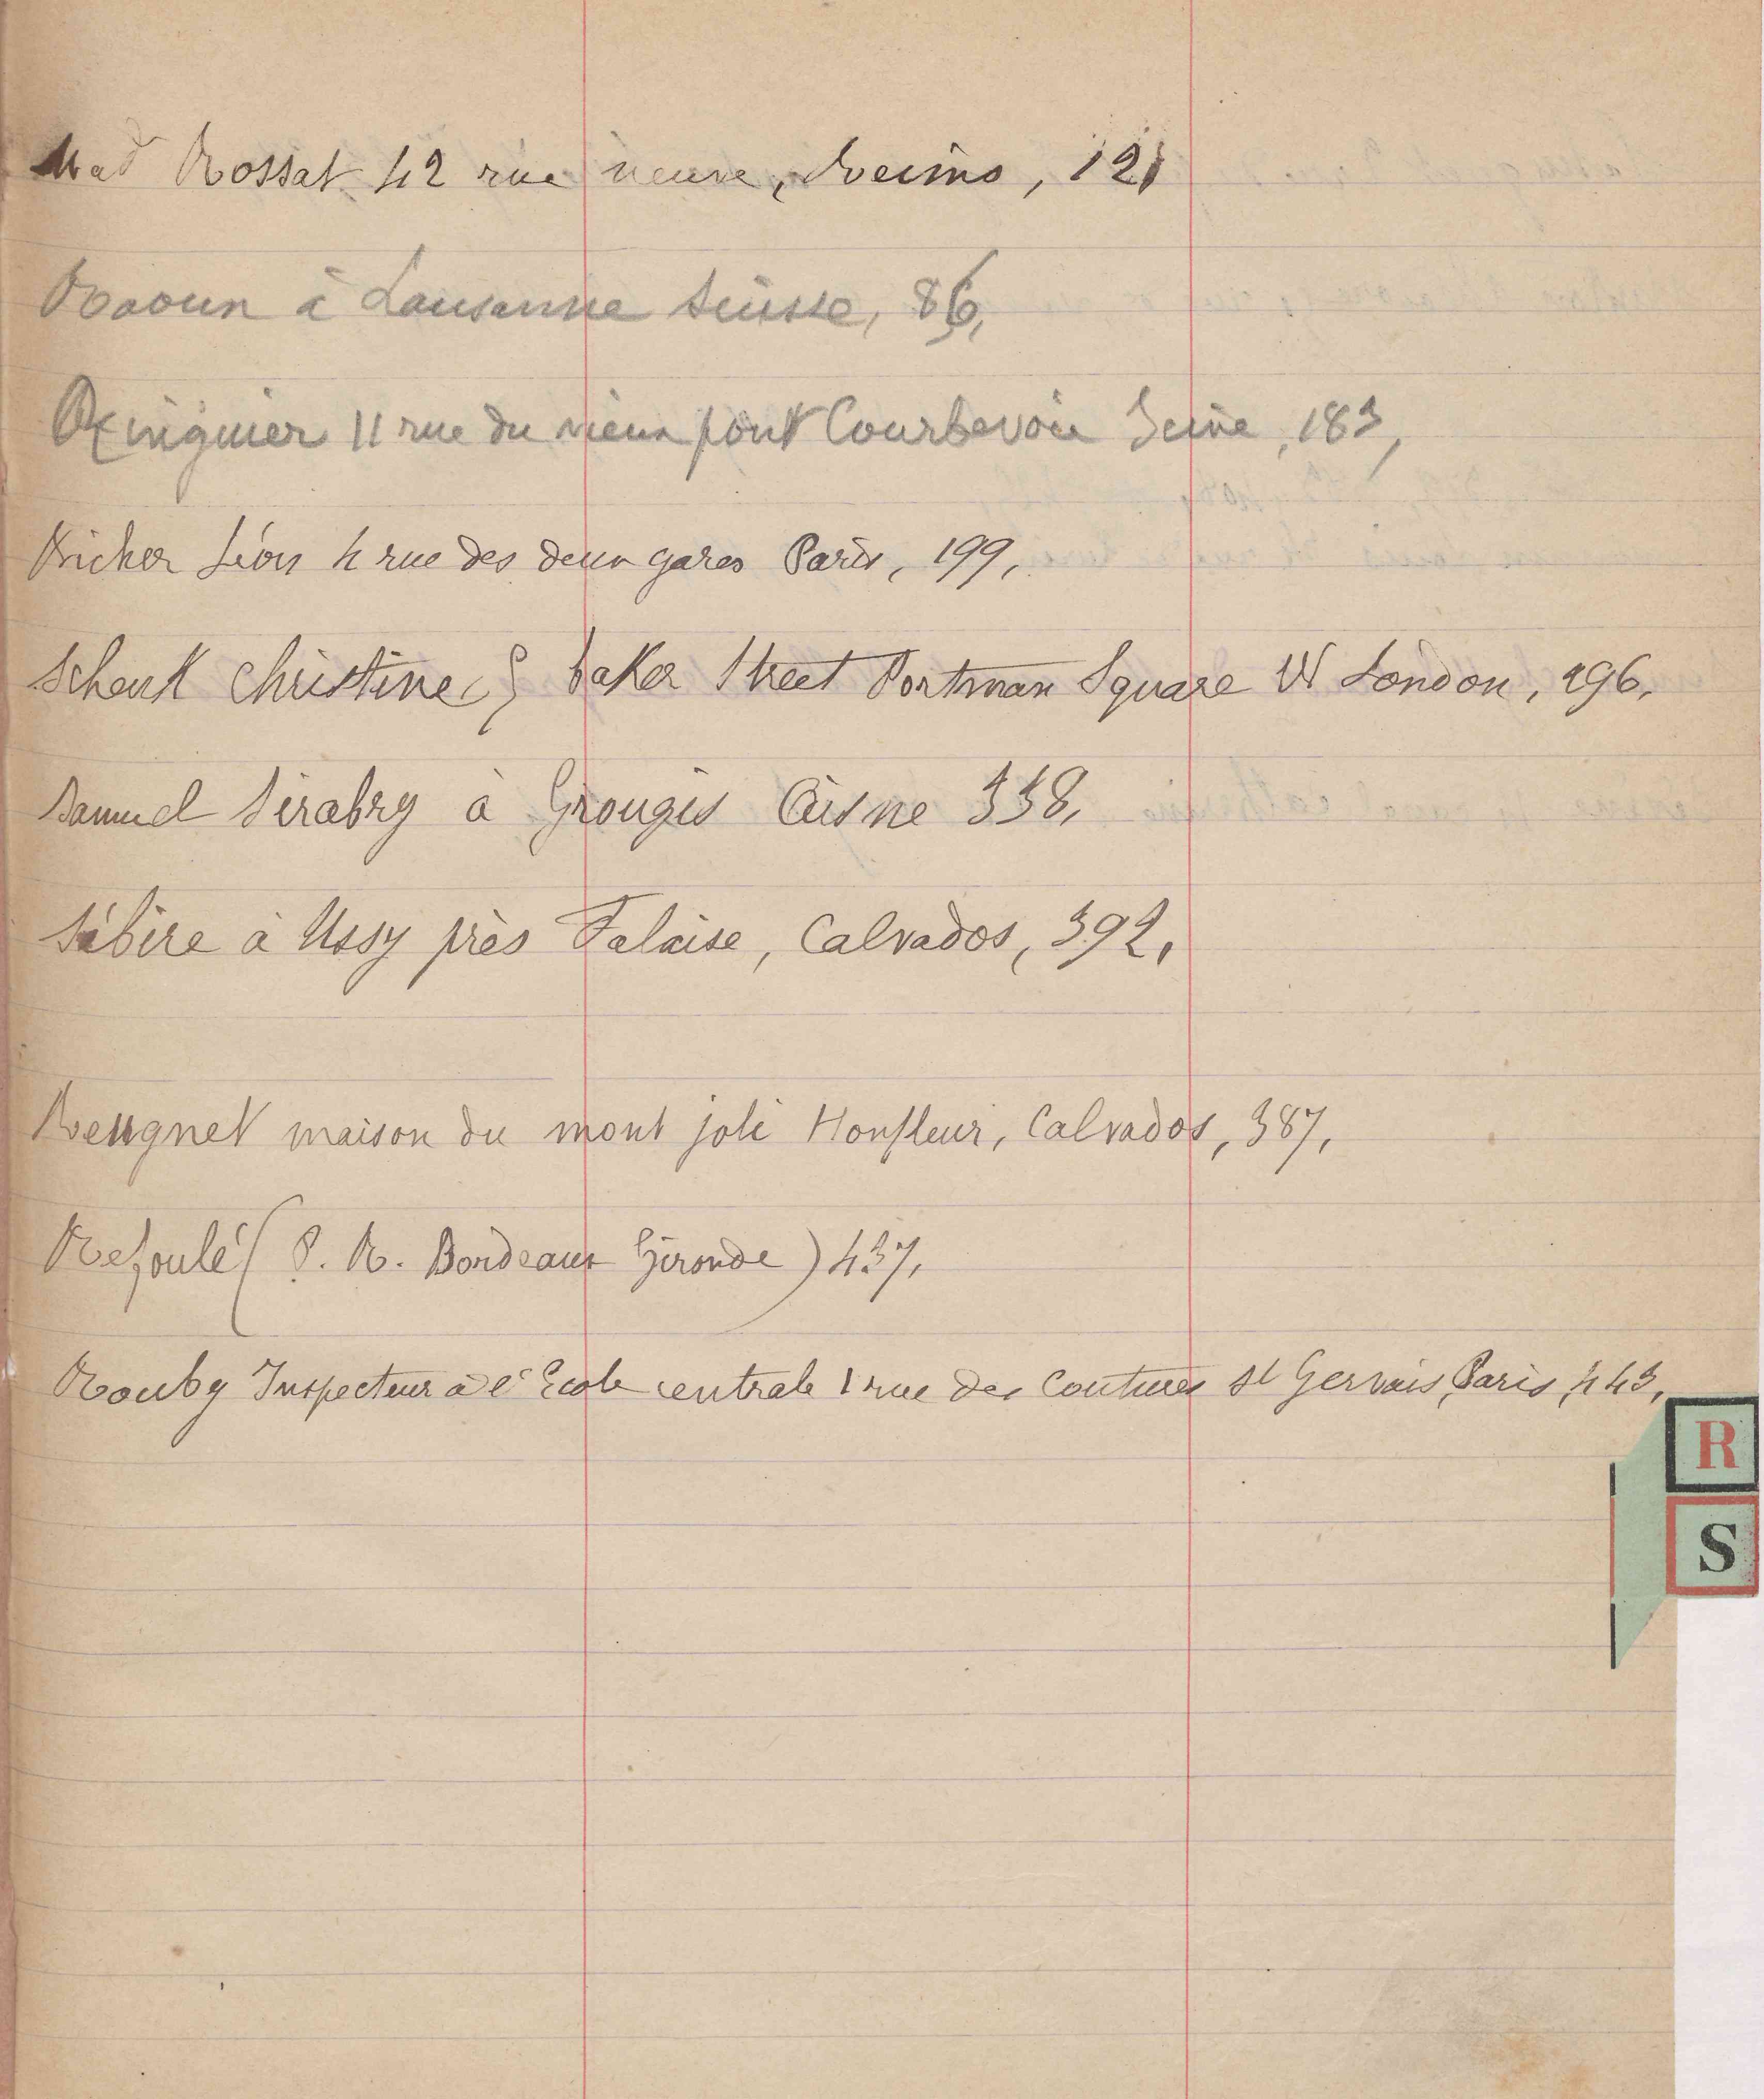 Mad Rossat 42 rue neuve, Reims, 121
Raoun à Lausanne suisse, 86,
Ringuier 11 rue du vieux pont Courbevoie Seine, 183,
Richer Léon 4 rue des deux gares Paris, 199,
Schenk Christine baker Street Portman Square W London, 296,
Samuel Sérabry à Grougis Aisne 338,
Sébire à Ussy près Falaise, Calvados, 392,
Reugnet maison du mont joli Honfleur, Calvados, 387,
Refoulé (P. R. Bordeaux Gironde) 437,
Rouby Inspecteur à l'École centrale 1 rue des Coutures St Gervais, Paris, 443,
R
S